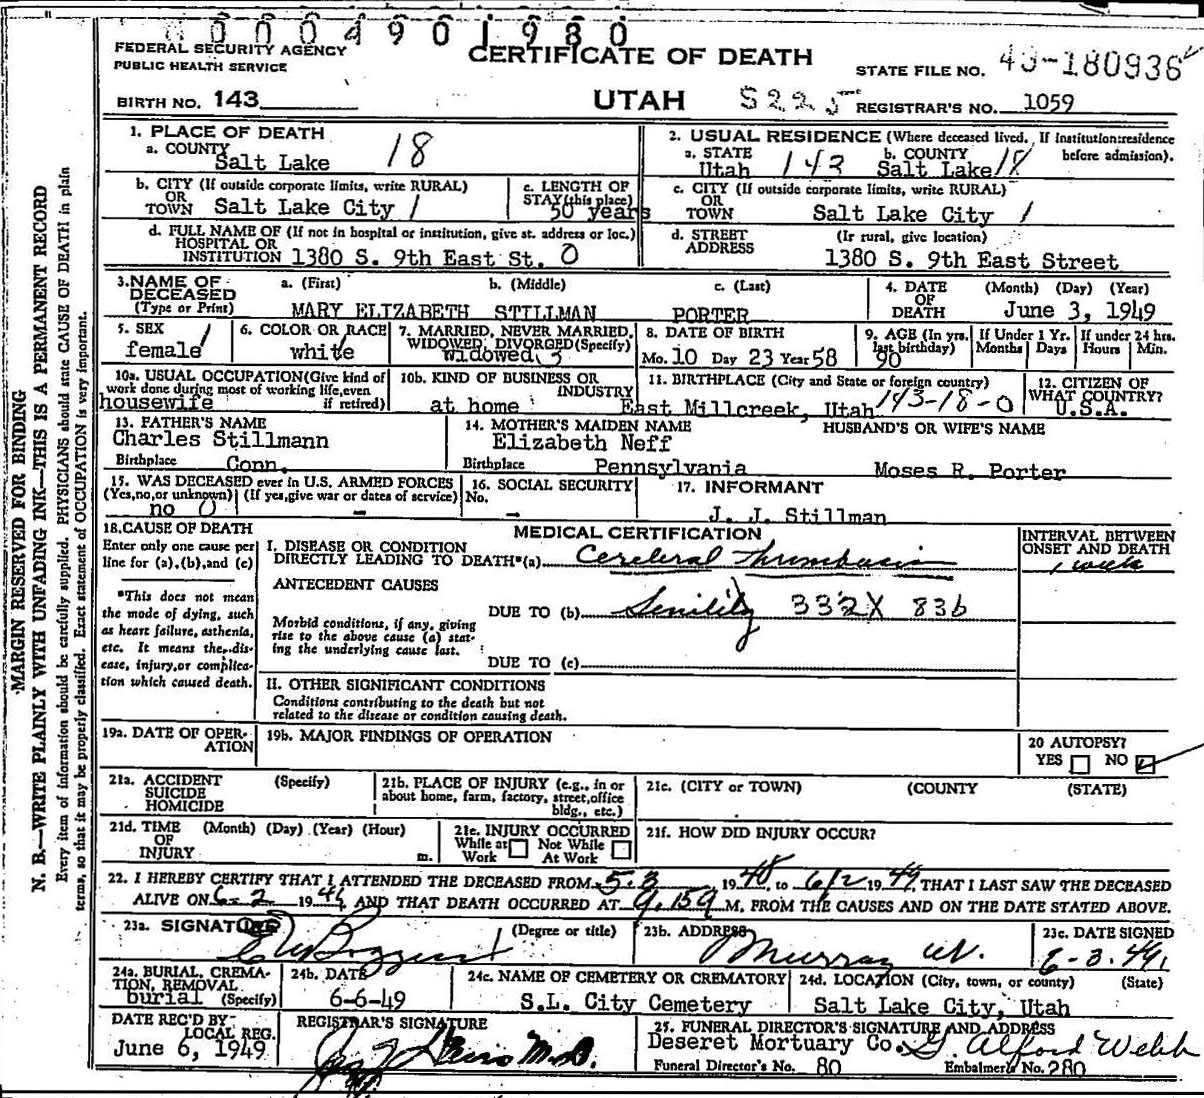 0004901980
FEDERAL SECURITY AGENCY
PUBLIC HEALTH SERVICE
CERTIFICATE OF DEATH
STATE FILE NO. 49-180936
BIRTH NO. 143
UTAH S225 REGISTRAR'S NO. 1059
1. PLACE OF DEATH
a. COUNTY
Salt Lake 18
2. USUAL RESIDENCE (Where deceased lived. If institution: residence before admission).
a. STATE b. COUNTY
Utah 143 Salt Lake 18
b. CITY (If outside corporate limits, write RURAL)
OR
TOWN Salt Lake City 1
c. LENGTH OF
STAY (this place)
50 years
c. CITY (If outside corporate limits, write RURAL)
OR
TOWN Salt Lake City 1
d. FULL NAME OF (If not in hospital or institution, give st. address or loc.)
HOSPITAL OR
INSTITUTION 1380 S. 9th East St. 0
d. STREET (If rural, give location)
ADDRESS 1380 S. 9th East Street
3. NAME OF a. (First) b. (Middle) c. (Last)
DECEASED
(Type or Print) MARY ELIZABETH STILLMAN PORTER
4. DATE (Month) (Day) (Year)
OF
DEATH June 3, 1949
5. SEX
female 1
6. COLOR OR RACE
white
7. MARRIED, NEVER MARRIED,
WIDOWED, DIVORCED (Specify)
widowed 3
8. DATE OF BIRTH
Mo. 10 Day 23 Year 58
9. AGE (In yrs. last birthday)
90
If Under 1 Yr.
Months Days
If under 24 hrs.
Hours Min.
10a. USUAL OCCUPATION (Give kind of
work done during most of working life, even
housewife if retired)
10b. KIND OF BUSINESS OR
INDUSTRY
at home
11. BIRTHPLACE (City and State or foreign country)
East Millcreek, Utah 143-18-0
12. CITIZEN OF
WHAT COUNTRY?
U.S.A.
13. FATHER'S NAME
Charles Stillmann
Birthplace Conn.
14. MOTHER'S MAIDEN NAME
Elizabeth Neff
Birthplace Pennsylvania
HUSBAND'S OR WIFE'S NAME
Moses R. Porter
15. WAS DECEASED ever in U.S. ARMED FORCES
(Yes, no, or unknown) (If yes, give war or dates of service)
no 0 -
16. SOCIAL SECURITY
No. -
17. INFORMANT
J. J. Stillman
18. CAUSE OF DEATH
Enter only one cause per
line for (a), (b), and (c)
*This does not mean
the mode of dying, such
as heart failure, asthenia,
etc. It means the dis-
ease, injury, or complica-
tion which caused death.
MEDICAL CERTIFICATION
I. DISEASE OR CONDITION
DIRECTLY LEADING TO DEATH*(a) Cerebral thrombosis
ANTECEDENT CAUSES
DUE TO (b) Senility 332X 83b
Morbid conditions, if any, giving
rise to the above cause (a) stat-
ing the underlying cause last.
DUE TO (c)
II. OTHER SIGNIFICANT CONDITIONS
Conditions contributing to the death but not
related to the disease or condition causing death.
INTERVAL BETWEEN
ONSET AND DEATH
1 week
19a. DATE OF OPER-
ATION
19b. MAJOR FINDINGS OF OPERATION
20 AUTOPSY?
YES NO
21a. ACCIDENT (Specify)
SUICIDE
HOMICIDE
21b. PLACE OF INJURY (e.g., in or
about home, farm, factory, street, office
bldg., etc.)
21c. (CITY or TOWN) (COUNTY (STATE)
21d. TIME (Month) (Day) (Year) (Hour)
OF
INJURY m.
21e. INJURY OCCURRED
While at Work Not While At Work
21f. HOW DID INJURY OCCUR?
22. I HEREBY CERTIFY THAT I ATTENDED THE DECEASED FROM 5-3 1948, to 6/2 1949, THAT I LAST SAW THE DECEASED
ALIVE ON 6-2 1949, AND THAT DEATH OCCURRED AT 9.15 a M, FROM THE CAUSES AND ON THE DATE STATED ABOVE.
23a. SIGNATURE (Degree or title)
23b. ADDRESS
Murray Ut.
23c. DATE SIGNED
6-3-49
24a. BURIAL, CREMA-
TION, REMOVAL
burial (Specify)
24b. DATE
6-6-49
24c. NAME OF CEMETERY OR CREMATORY
S.L. City Cemetery
24d. LOCATION (City, town, or county) (State)
Salt Lake City, Utah
DATE REC'D BY
LOCAL REG.
June 6, 1949
REGISTRAR'S SIGNATURE
M.D.
25. FUNERAL DIRECTOR'S SIGNATURE AND ADDRESS
Deseret Mortuary Co. G. Alford Webb
Funeral Director's No. 80 Embalmer's No. 280
MARGIN RESERVED FOR BINDING
N. B.—WRITE PLAINLY WITH UNFADING INK—THIS IS A PERMANENT RECORD
Every item of information should be carefully supplied. PHYSICIANS should state CAUSE OF DEATH in plain
terms, so that it may be properly classified. Exact statement of OCCUPATION is very important.